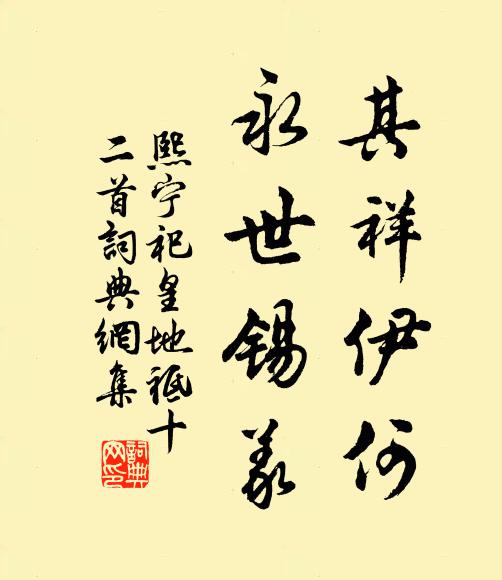 其祥伊何
永世錫羨
熙宁祀皇地祇十
二首詞典網集
詞典网印